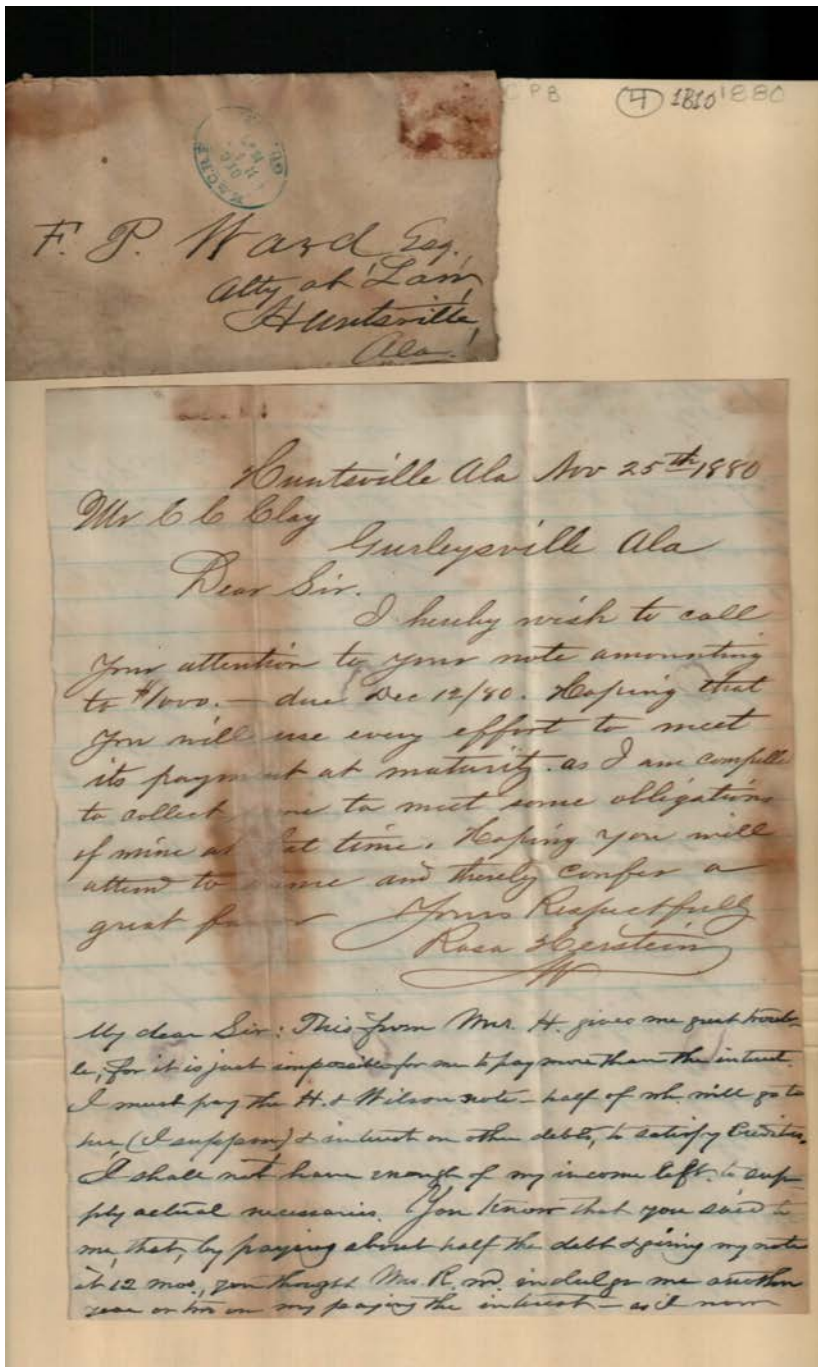 C P B
4 1810 1880
DEC
F. P. Ward Esq.
Atty at Law,
Huntsville,
Ala.
Huntsville Ala Nov 25th 1880
Mr C C Clay
Gurleysville Ala
Dear Sir.
I hereby wish to call
Your attention to your note amounting
to $1000.— due Dec 12/80. Hoping that
You will use every effort to meet
its paym t at maturity. as I am compelled
to collect me to meet some obligations
of mine at at time. Hoping you will
attend to same and thereby confer a
great fa r Yours Respectfully
Rosa Herstein
My dear Sir: This from Mrs. H. gives me great troub-
le, for it is just impossible for me to pay more than the interest.
I must pay the H. & Wilson note – half of wh. will go to
her (I suppose) & interest on other debts, to satisfy Creditors.
I shall not have enough of my income left to sup-
ply actual necessaries. You know that you said to
me, that, by paying about half the debt & giving my note
at 12 mos., you thought Mrs. R. wd. indulge me another
year or two on my paying the interest – as I now